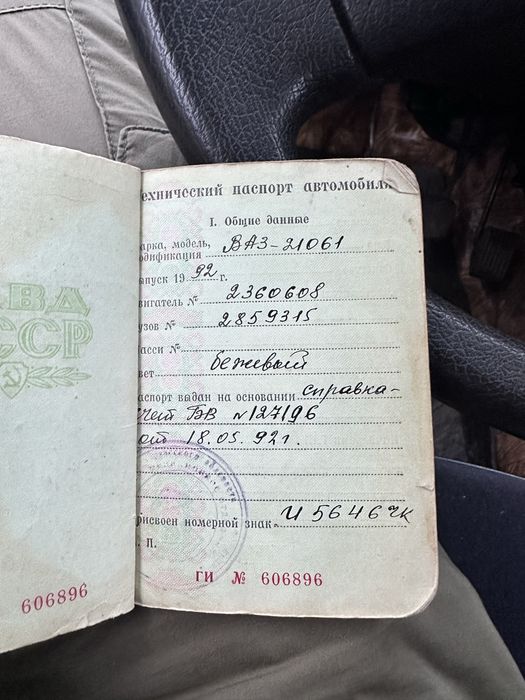 ВА
ССР
606896
ехнический паспорт автомобиля
I. Общие данные
арка, модель,
одификация ВАЗ-21061
ыпуск 1992 г.
вигатель № 2360608
узов № 2859315
асси №
вет бежевый
аспорт выдан на основании справка-
счет БВ №127196
от 18.05.92г.
рисвоен номерной знак И 5646 ЧК
. П.
ГИ № 606896